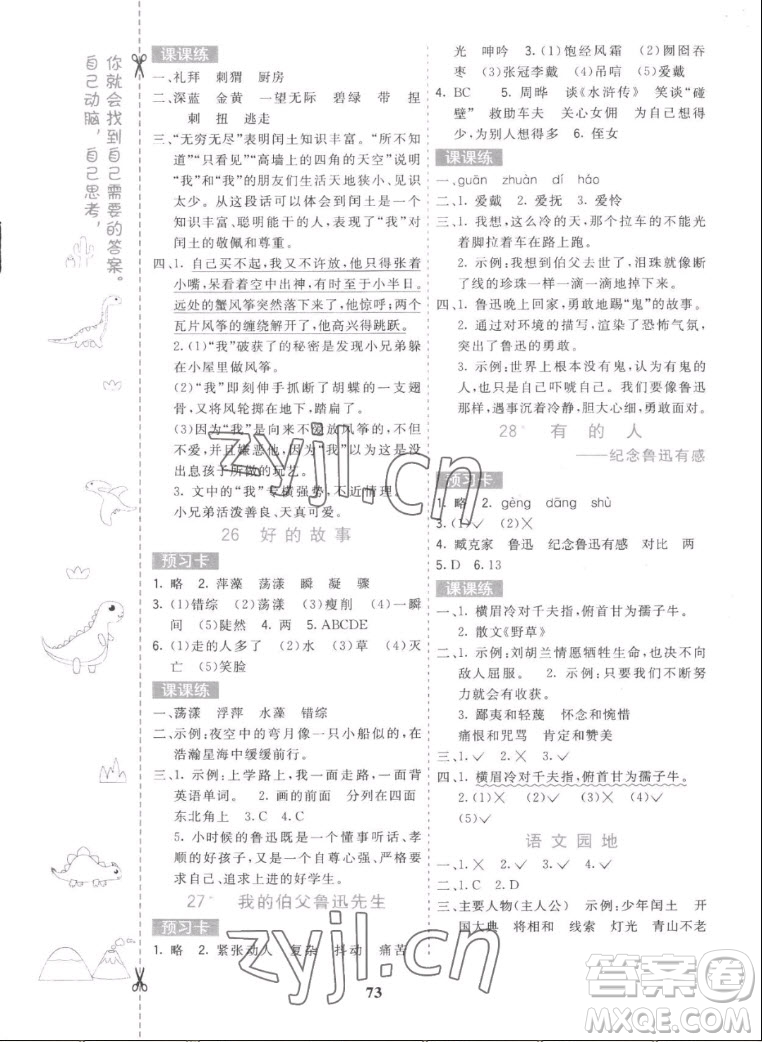 你就会找到自己需要的答案。
自己动脑，自己思考，
课课练
一、礼拜 刺猬 厨房
二、深蓝 金黄 一望无际 碧绿 带 捏
刺 扭 逃走
三、“无穷无尽”表明闰土知识丰富。“所不知
道”“只看见”“高墙上的四角的天空”说明
“我”和“我”的朋友们生活天地狭小、见识
太少。从这段话可以看出闰土是一个
知识丰富、聪明能干的人，表明了“我”对
闰土的敬佩和尊重。
四、1. 自己买不起，我又不许放，他只得张着
小嘴，呆看着空中出神，有时竟至于小半日。
远处的蟹风筝突然落下来了，他惊呼；两个
瓦片风筝的缠绕解开了，他高兴得跳跃。
2. (1)“我”破获了的秘密是发现小兄弟躲
在小屋里做风筝。
(2)“我”即刻伸手折断了胡蝶的一支翅
骨，又将风轮掷在地下，踏扁了。
(3)因为“我”是向来不爱放风筝的，不但
不爱，并且嫌恶他，因为“我”以为这是没
出息孩子所做的玩艺。
3. 文中的“我”专横强势，不近情理。
小兄弟活泼善良、天真可爱。
26 好的故事
预习卡
1. 略 2. 萍藻 荡漾 瞬 凝 骤
3. (1)错综 (2)荡漾 (3)瘦削 (4)一瞬
间 (5)陡然 4. 略 5. ABCDE
6. (1)走的人多了 (2)水 (3)草 (4)灭
亡 (5)笑脸
课课练
一、荡漾 浮萍 水藻 错综
二、示例：夜空中的弯月像一只小船似的，在
浩瀚星海中缓缓前行。
三、1. 示例：上学路上，我一面走路，一面背
英语单词。 2. 画的前面 分散在四面
东北角上 3. C 4. C
5. 小时候的鲁迅既是一个懂事听话、孝
顺的好孩子，又是一个严格要求自己、上
进、追求上进的好学生。
27 我的伯父鲁迅先生
预习卡
1. 略 2. 紧张动人 复杂 抖动 痛苦
光 呻吟 3. (1)饱经风霜 (2)囫囵吞
枣 (3)张冠李戴 (4)吊唁 (5)爱戴
4. BC 5. 周晔 谈《水浒传》 笑谈“碰
壁” 救助车夫 关心女佣 为自己想得
少，为别人想得多 6. 侄女
课课练
一、guān zhuàn dí háo
二、1. 爱戴 2. 爱抚 3. 爱怜
三、1. 我想，这么冷的天，那个拉车的怎么能光
着脚拉着车在路上跑。
2. 示例：我想到伯父去世了，泪珠就像断了
线的珍珠一样一滴一滴地往下掉。
四、1. 鲁迅晚上回家，勇敢地踢“鬼”的故事。
2. 通过对环境的描写，渲染了恐怖气氛，
突出了鲁迅的勇敢。
3. 示例：世界上根本没有鬼，害怕有鬼
的人，只是自己吓唬自己。我们要像鲁迅
那样，遇事沉着冷静，胆大心细，勇敢面对。
28 有的人
——纪念鲁迅有感
预习卡
1. 略 2. gèng dāng shù
3. (1)✓ (2)✕
4. 臧克家 鲁迅 纪念鲁迅有感 对比 两
5. D 6. 13
课课练
一、1. 横眉冷对千夫指，俯首甘为孺子牛。
2. 散文《野草》
二、1. 示例：刘胡兰情愿牺牲生命，也决不向
敌人屈服。 2. 示例：只要我们不断努
力就会有收获。
3. 鄙夷和轻蔑 怀念和惋惜
痛恨和咒骂 肯定和赞美
三、1. ✓ 2. ✕ 3. ✓
四、1. 横眉冷对千夫指，俯首甘为孺子牛。
2. (1)✕ (2)✓ (3)✕ (4)✓
(5)✓
语文园地
一、1. ✕ 2. ✓ 3. ✓ 4. ✓
二、1. C 2. D
三、主要人物(主人公) 示例：少年闰土 开
国大典 将相和 线索 灯光 青山不老
73
zyjl.cn
zyjl.cn
答案圈
MXQE.COM